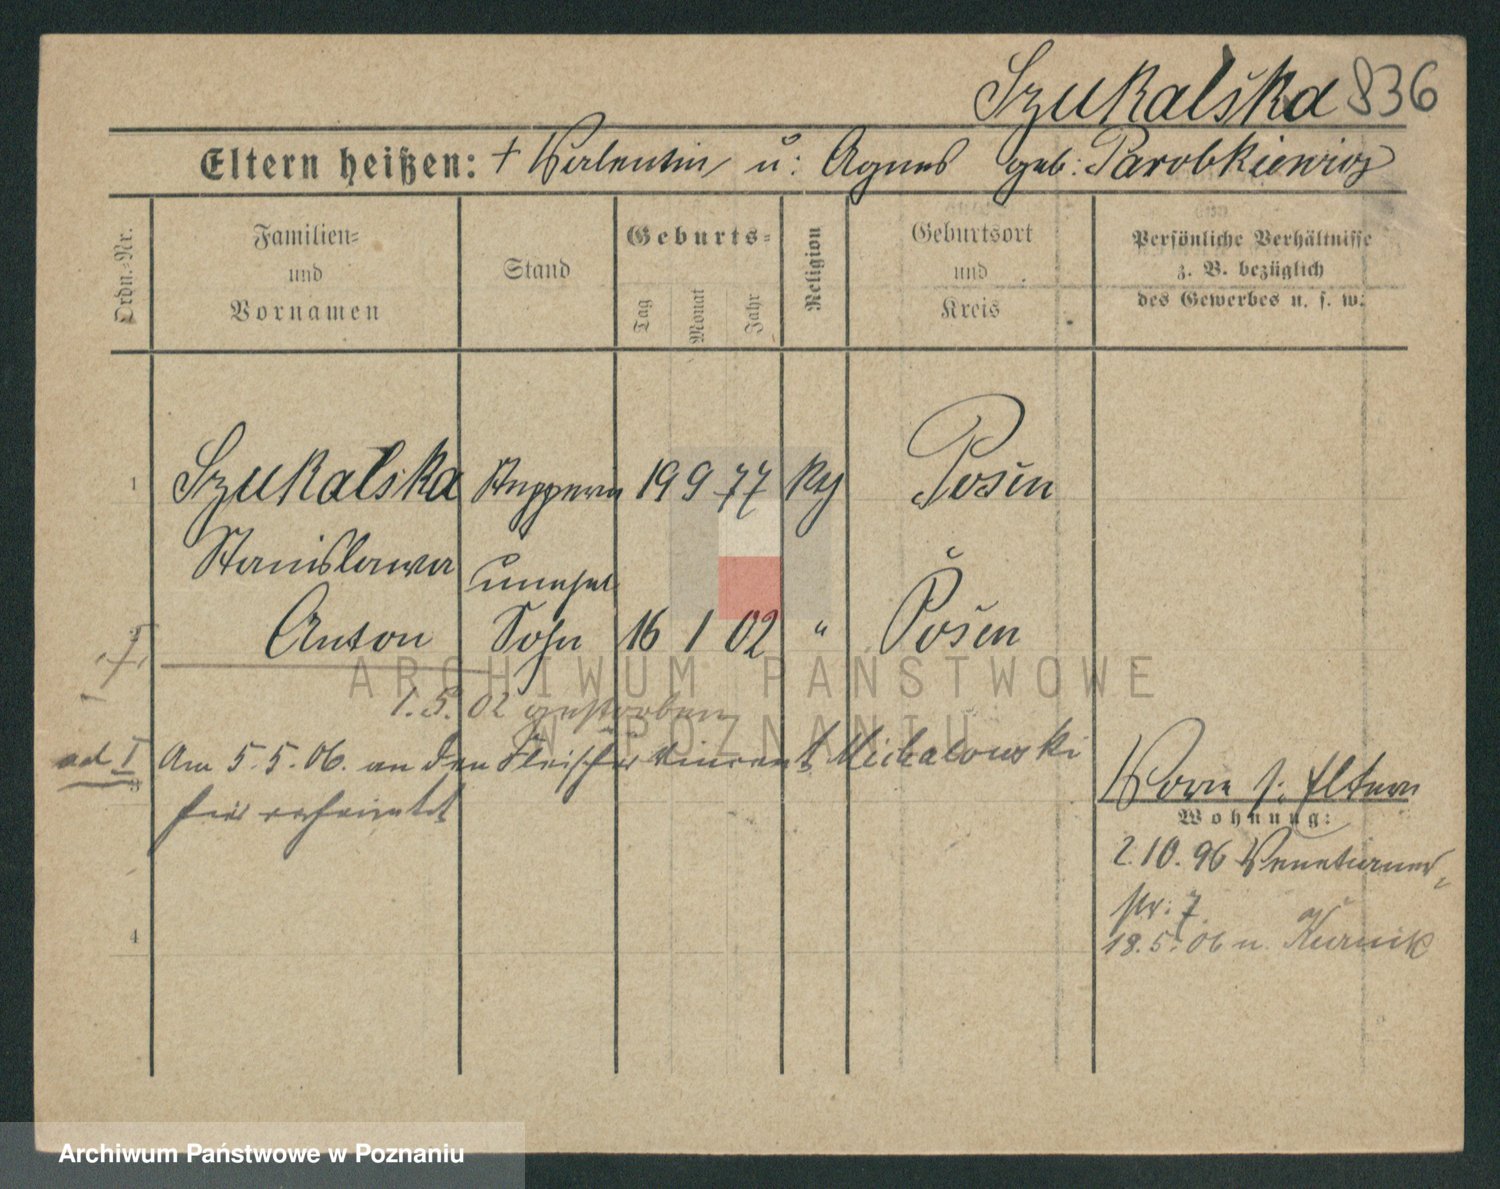 Szukalska 836
Eltern heißen: + Valentin u: Agnes geb: Parobkiewicz
Ordn.-Nr.
Familien-
und
Vornamen
Stand
Geburts-
Tag
Monat
Jahr
Religion
Geburtsort
und
Kreis
Persönliche Verhältnisse
z. B. bezüglich
des Gewerbes u. s. w.
1 Szukalska Stepperin 19 9 77 Posen
Stanislawa
unehel
Anton Sohn 16 1 02 " Posen
1.5.02 gestorben
ad I Am 5.5.06. an den Fleischer Vincent Michalowski
hier verheiratet
3
Vorw s: Eltern
Wohnung:
2.10.96 Venetianer-
str: 7
18.5.06 n. Kurnik
4
ARCHIWUM PAŃSTWOWE
W POZNANIU
Archiwum Państwowe w Poznaniu